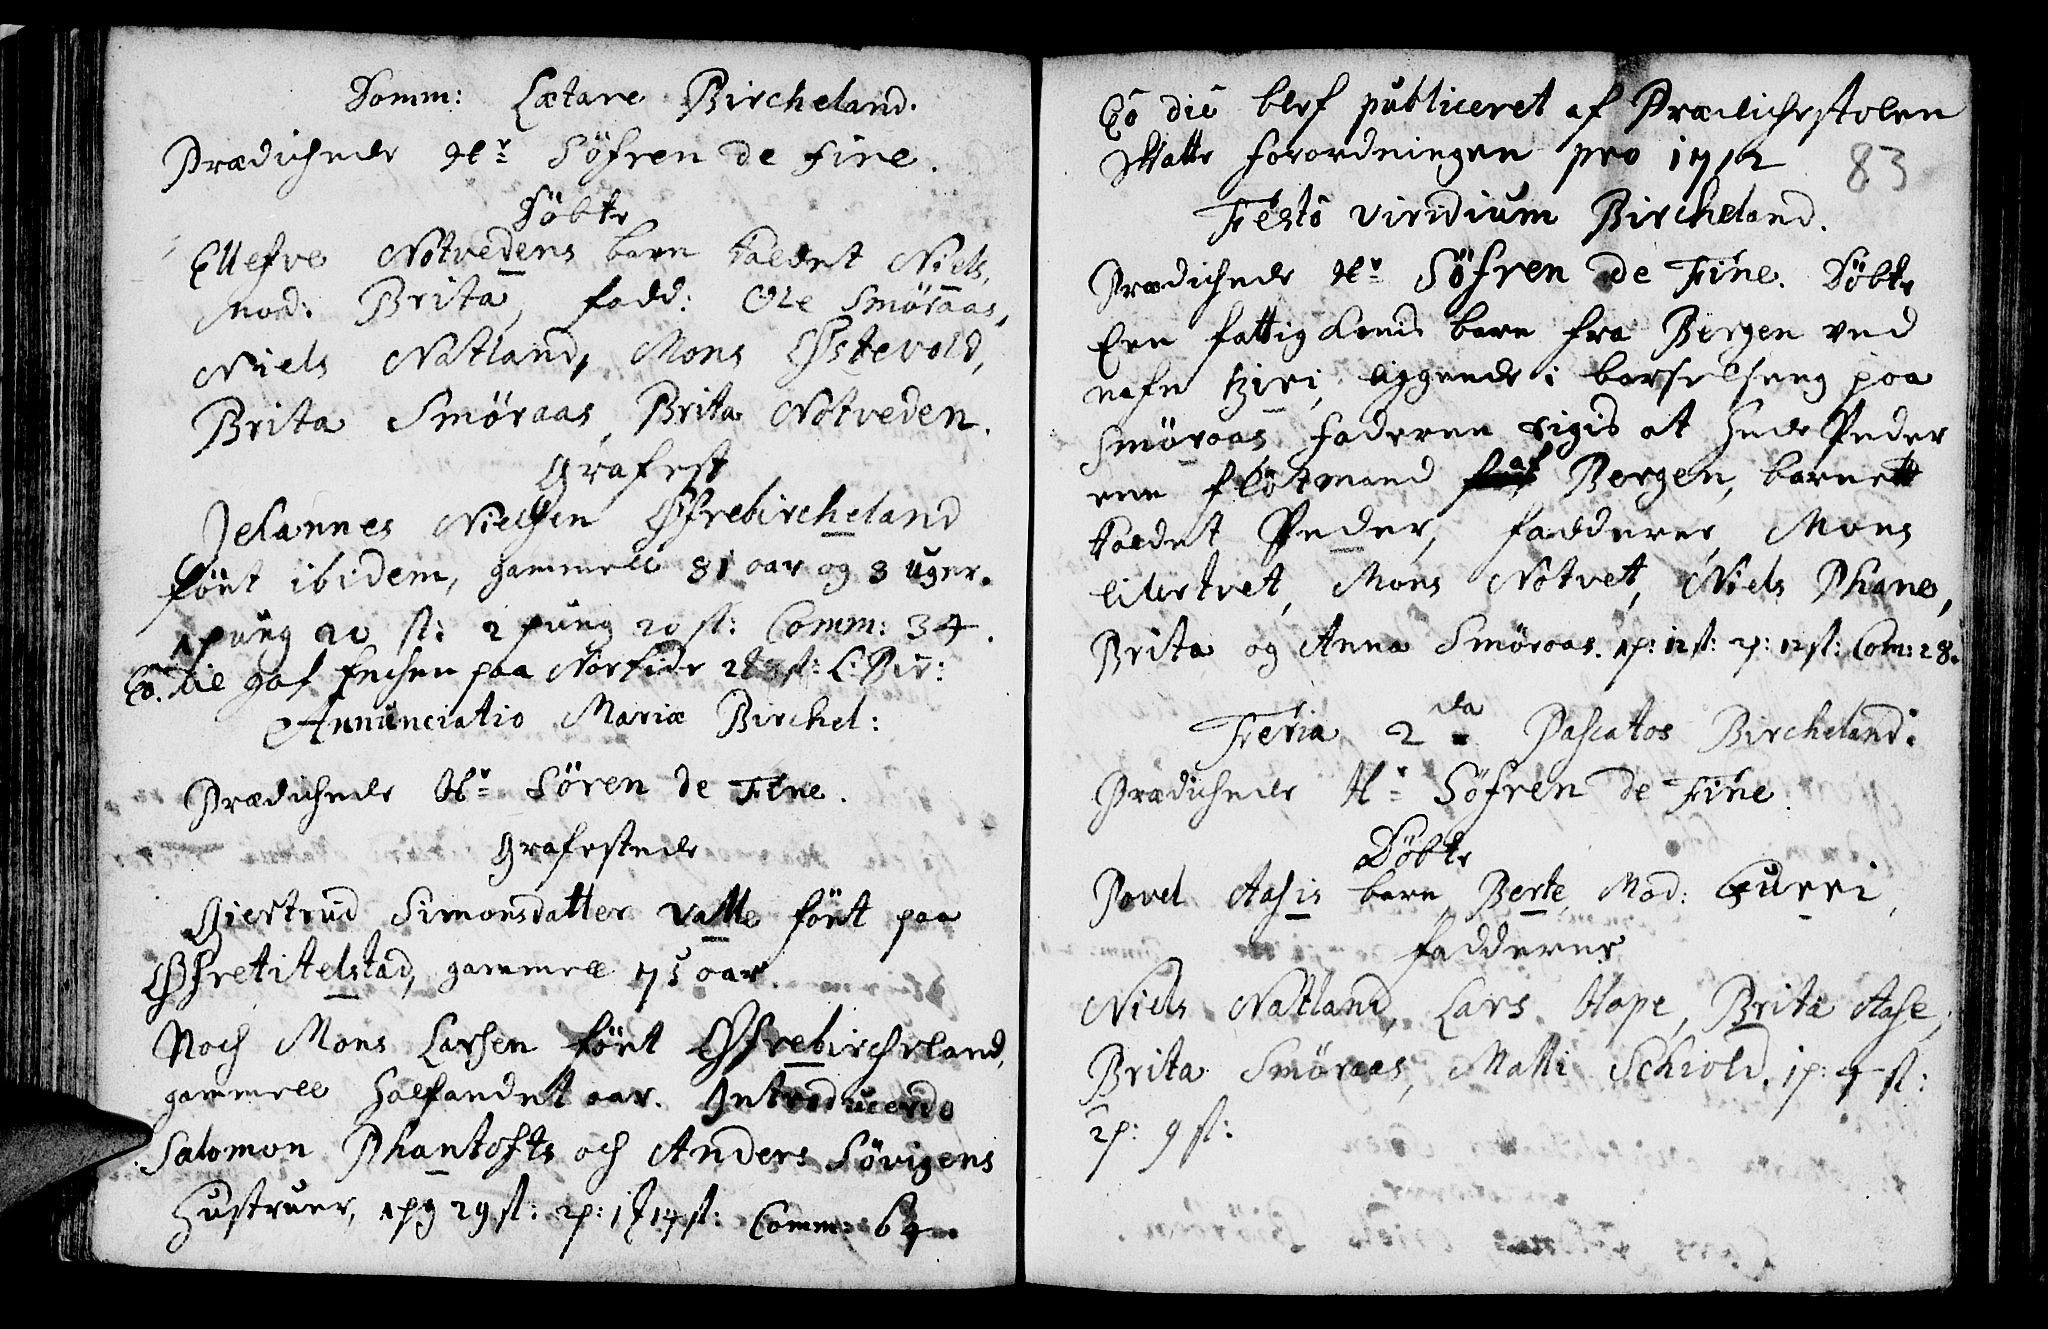 Domm: Lætare Bircheland.
Prædichede Hr Söfren de Fine.
Döbte
Ellefve Nötvedens barn kaldet Niels,
Mod: Brita, fadd: Ole Smöraas,
Niels Natland, Mons Østevold,
Brita Smöraas, Brita Nötveden.
Grafest
Johannes Nielsen Øfrebircheland
född ibidem, gammell 81 aar og 3 uger.
1 pung 20 sl: 2 pung 20 sl: Comm: 34.
Eo. die gaf Enchen paa Norside sl:
Annunciatio Mariæ Birchel:
Prædichede Hr Sören de Fine.
Grafestede
Giertrud Simonsdatter Valle föet paa
Øfretitelstad, gammell 75 aar.
Noch Mons Larsen föet Øfrebircheland,
gammell halfandet aar. Introducerede
Salomon Phantofts och Anders Sövigens
Hustruer, 1 pg 29 sl: 2p: 14 sl: Comm: 64
Eô diê blef publiceret af Prædichestolen
Skatte forordningen pro 1712
83
Festô viridium Bircheland.
Prædichede Hr Söfren de Fine. Döbte
Een fattig Qvinds barn fra Bergen ved
nafn Siri, liggende i barselseng paa
Smöraas, faderen sigis at hede Peder
een flötmand af Bergen, barnett
kaldet Peder, fadderne, Mons
Litletvet, Mons Nötvet, Niels Phane,
Brita og Anna Smöraas. 1p: 12 sl: 2p: 12 sl: Com: 28.
Feria 2da Paschatos Bircheland.
Prædichede Hr Söfren de Fine.
Döbte
Povel Aasis barn, Berte, Mod: Gurri,
fadderne
Niels Natland, Lars Hope, Brita Aase,
Brita Smöraas, Malli Schiold. 1p: 4 sl:
2p: 9 sl: